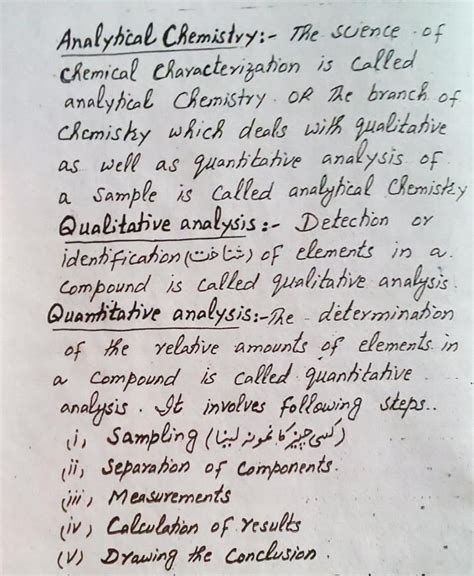 Analytical Chemistry:- The science of
Chemical Characterization is called
analytical Chemistry. OR The branch of
Chemistry which deals with qualitative
as well as quantitative analysis of
a Sample is Called analytical Chemistry
Qualitative analysis:- Detection or
identification (شناخت) of elements in a
Compound is called qualitative analysis.
Quantitative analysis:- The determination
of the relative amounts of elements in
a Compound is called quantitative
analysis. It involves following steps..
(i) Sampling (کسی چیز کا نمونہ لینا)
(ii) Separation of Components.
(iii) Measurements
(iv) Calculation of results
(V) Drawing the Conclusion.